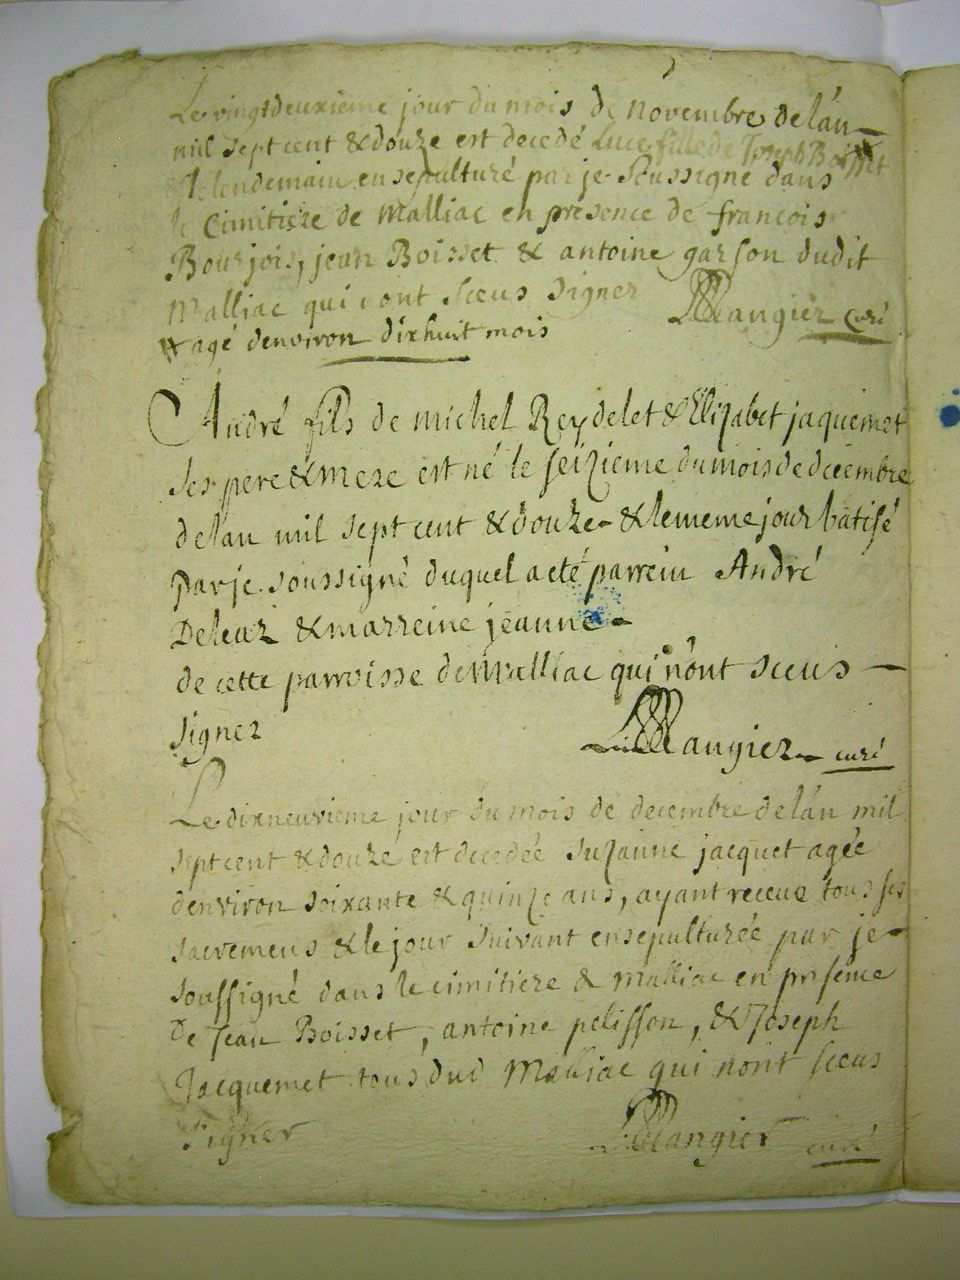 Le vingtdeuxieme jour du mois de novembre de lán
mil sept cent & douze est decedé Luce fille de Joseph Boisset
& le lendemain ensepulturé par je soussigné dans
le Cimitiere de Malliac en presence de francois
Bourjois, jean Boisset & antoine garson dudit
Malliac qui n ont sceus signer Mangier curé
agé denviron dixhuit mois
André fils de michel Reydelet & Elizabet jaquemet
ses pere & mere est né le seizieme du mois de decembre
de lan mil sept cent & douze & le meme jour batisé
par je soussigné duquel a eté parrein André
Deleaz & marreine jeanne
de cette parroisse de Malliac qui n'ont sceus
signer Mangier curé
Le dixneuvieme jour du mois de decembre de lán mil
sept cent & douze est decedée Suzanne jacquet agée
denviron soixante & quinze ans, ayant receue tous ses
sacremens & le jour suivant ensepulturée par je
soussigné dans le cimitiere de Malliac en presence
De Jean Boisset, antoine pelisson, & Joseph
Jacquemet tous dud Malliac qui nont sceus
signer Mangier curé